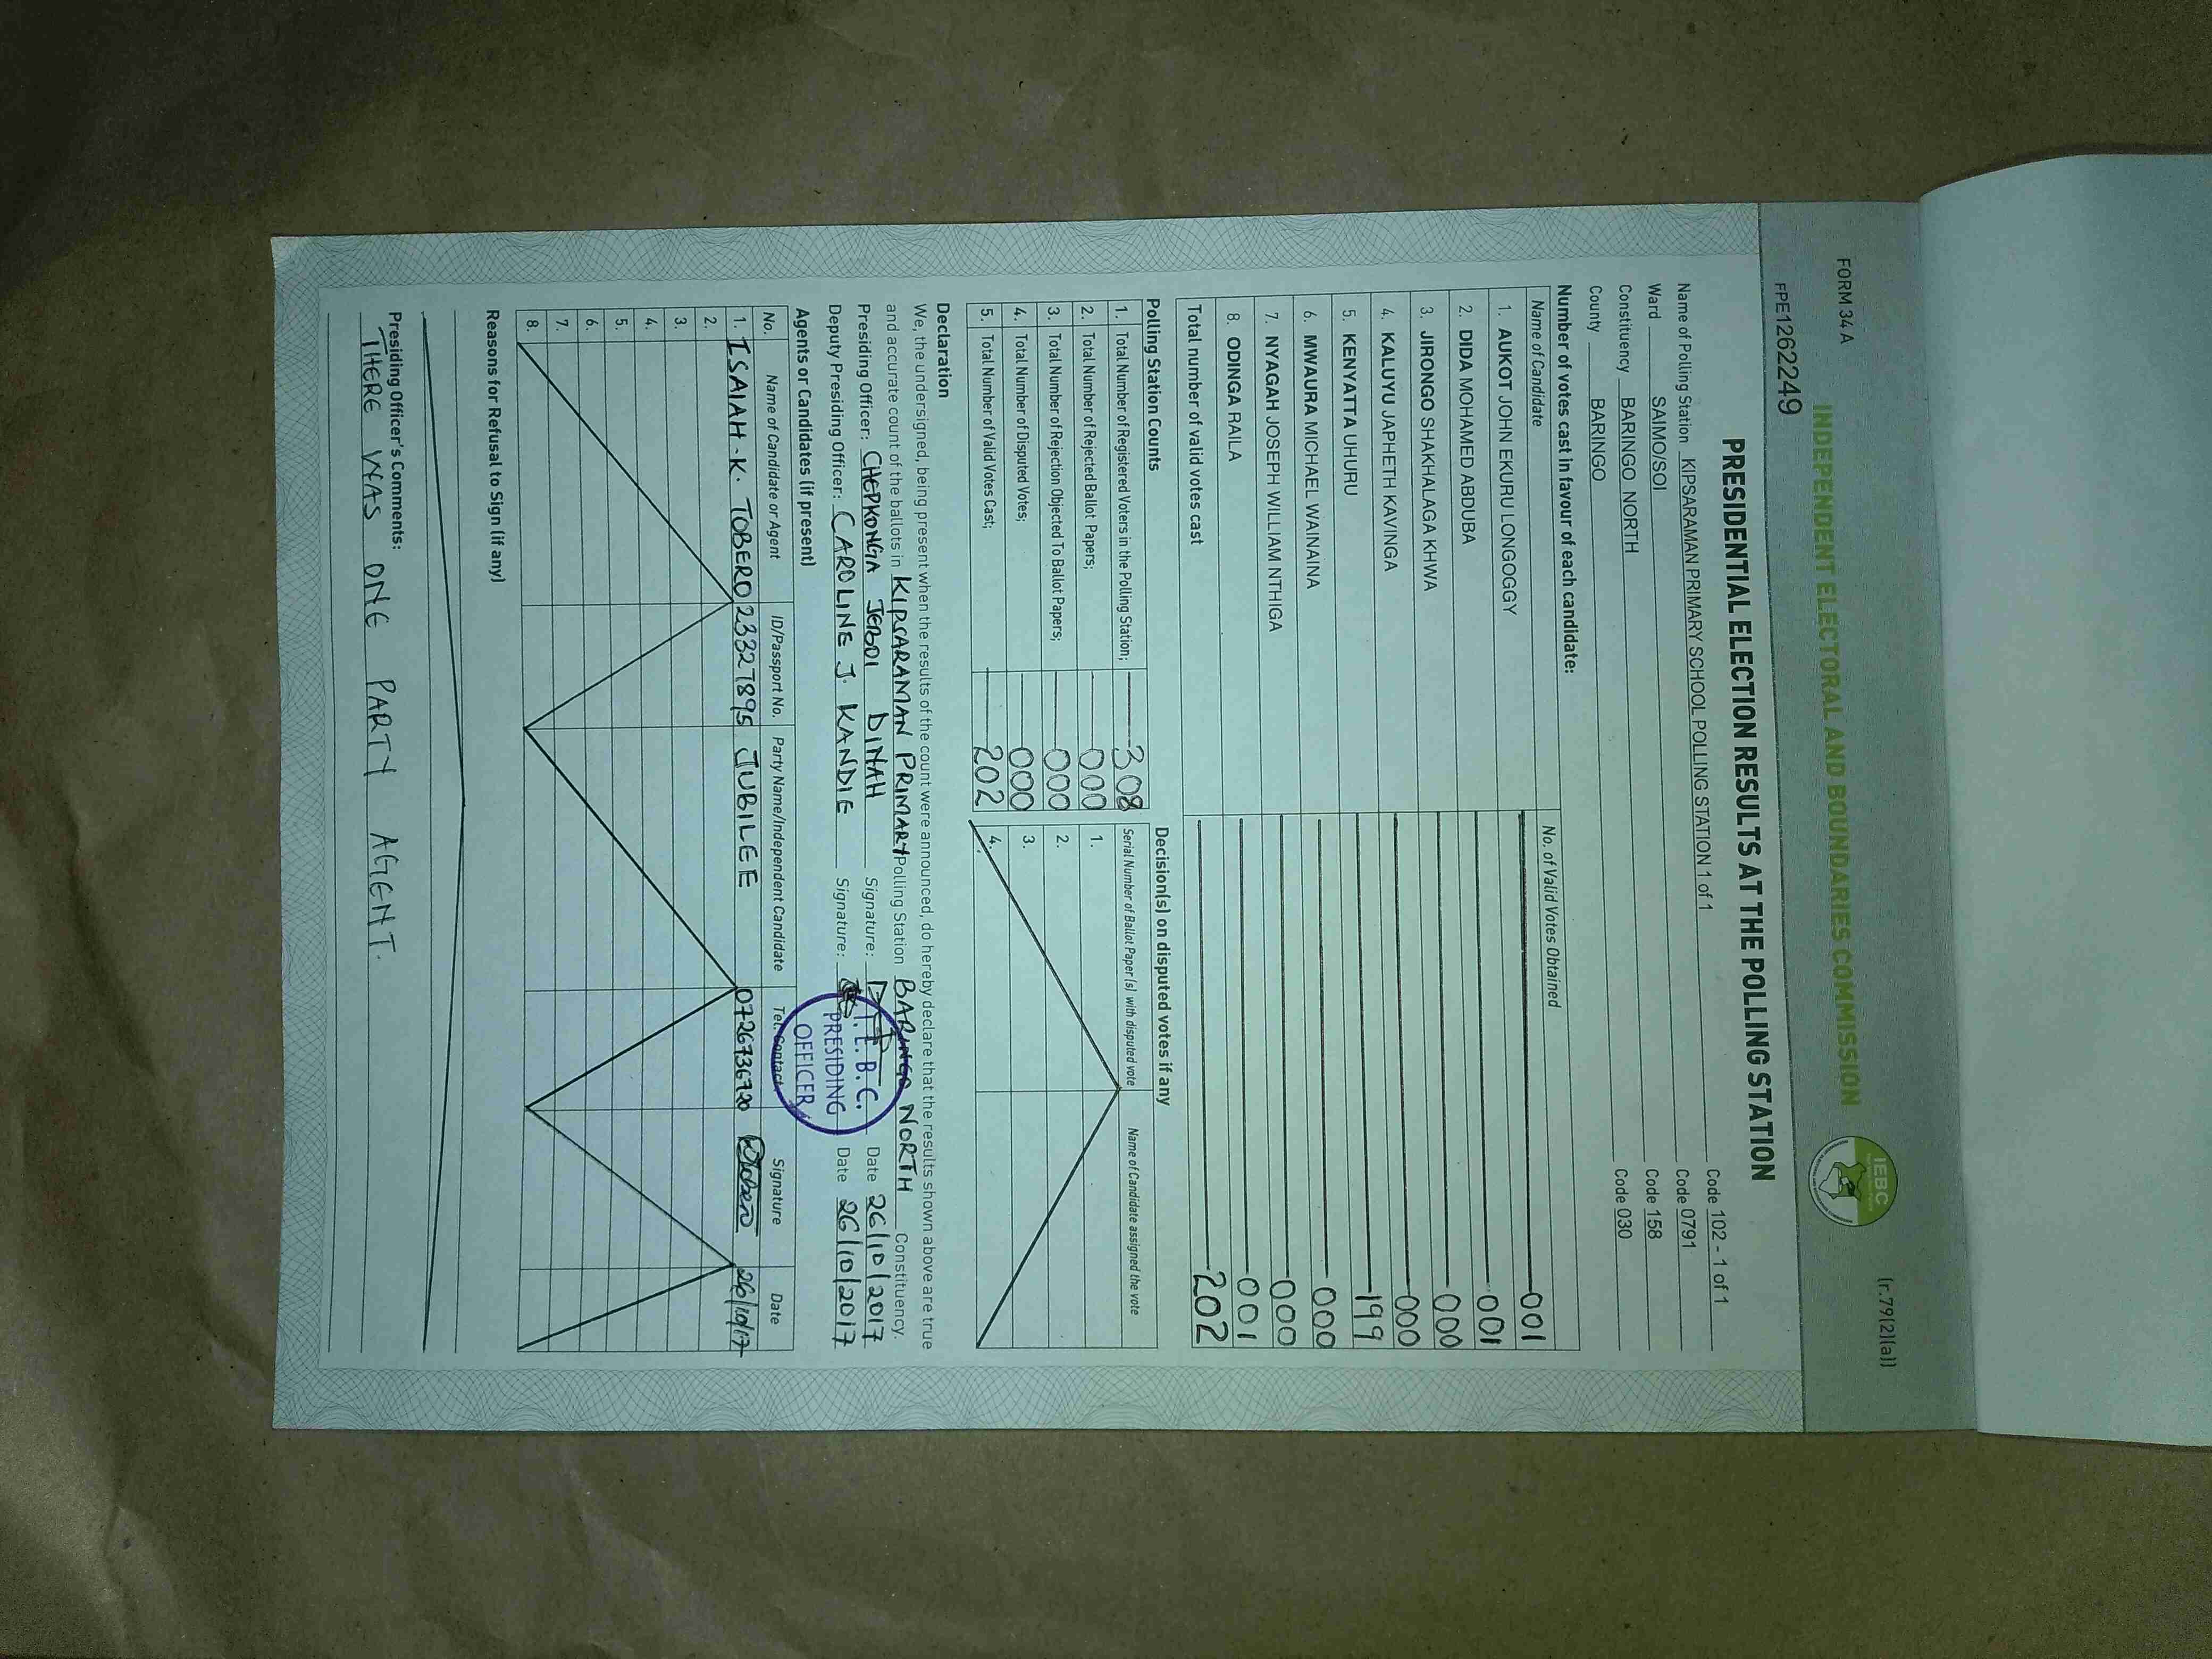 FORM 34 A
(r.79(2)(a))
INDEPENDENT ELECTORAL AND BOUNDARIES COMMISSION
IEBC
FPE1262249
PRESIDENTIAL ELECTION RESULTS AT THE POLLING STATION
Name of Polling Station KIPSARAMAN PRIMARY SCHOOL POLLING STATION 1 of 1 Code 102 - 1 of 1
Ward SAIMO/SOI Code 0791
Constituency BARINGO NORTH Code 158
County BARINGO Code 030
Number of votes cast in favour of each candidate:
Name of Candidate No. of Valid Votes Obtained
1. AUKOT JOHN EKURU LONGOGGY 001
2. DIDA MOHAMED ABDUBA 001
3. JIRONGO SHAKHALAGA KHWA 000
4. KALUYU JAPHETH KAVINGA 000
5. KENYATTA UHURU 199
6. MWAURA MICHAEL WAINAINA 000
7. NYAGAH JOSEPH WILLIAM NTHIGA 000
8. ODINGA RAILA 001
Total number of valid votes cast 202
Polling Station Counts
1. Total Number of Registered Voters in the Polling Station; 308
2. Total Number of Rejected Ballot Papers; 000
3. Total Number of Rejection Objected To Ballot Papers; 000
4. Total Number of Disputed Votes; 000
5. Total Number of Valid Votes Cast; 202
Decision(s) on disputed votes if any
Serial Number of Ballot Paper (s) with disputed vote Name of Candidate assigned the vote
1.
2.
3.
4.
Declaration
We, the undersigned, being present when the results of the count were announced, do hereby declare that the results shown above are true
and accurate count of the ballots in KIPSARAMAN PRIMARY Polling Station BARINGO NORTH Constituency.
Presiding Officer: CHEPKONGA JEBOI DINAH Signature: Date 26/10/2017
Deputy Presiding Officer: CAROLINE J. KANDIE Signature: Date 26/10/2017
I.E.B.C.
PRESIDING
OFFICER
Agents or Candidates (if present)
No. Name of Candidate or Agent ID/Passport No. Party Name/Independent Candidate Tel. Contact Signature Date
1. ISAIAH.K. TOBERO 23327895 JUBILEE 0726736720 26/10/17
2.
3.
4.
5.
6.
7.
8.
Reasons for Refusal to Sign (if any)
Presiding Officer's Comments:
THERE WAS ONE PARTY AGENT.